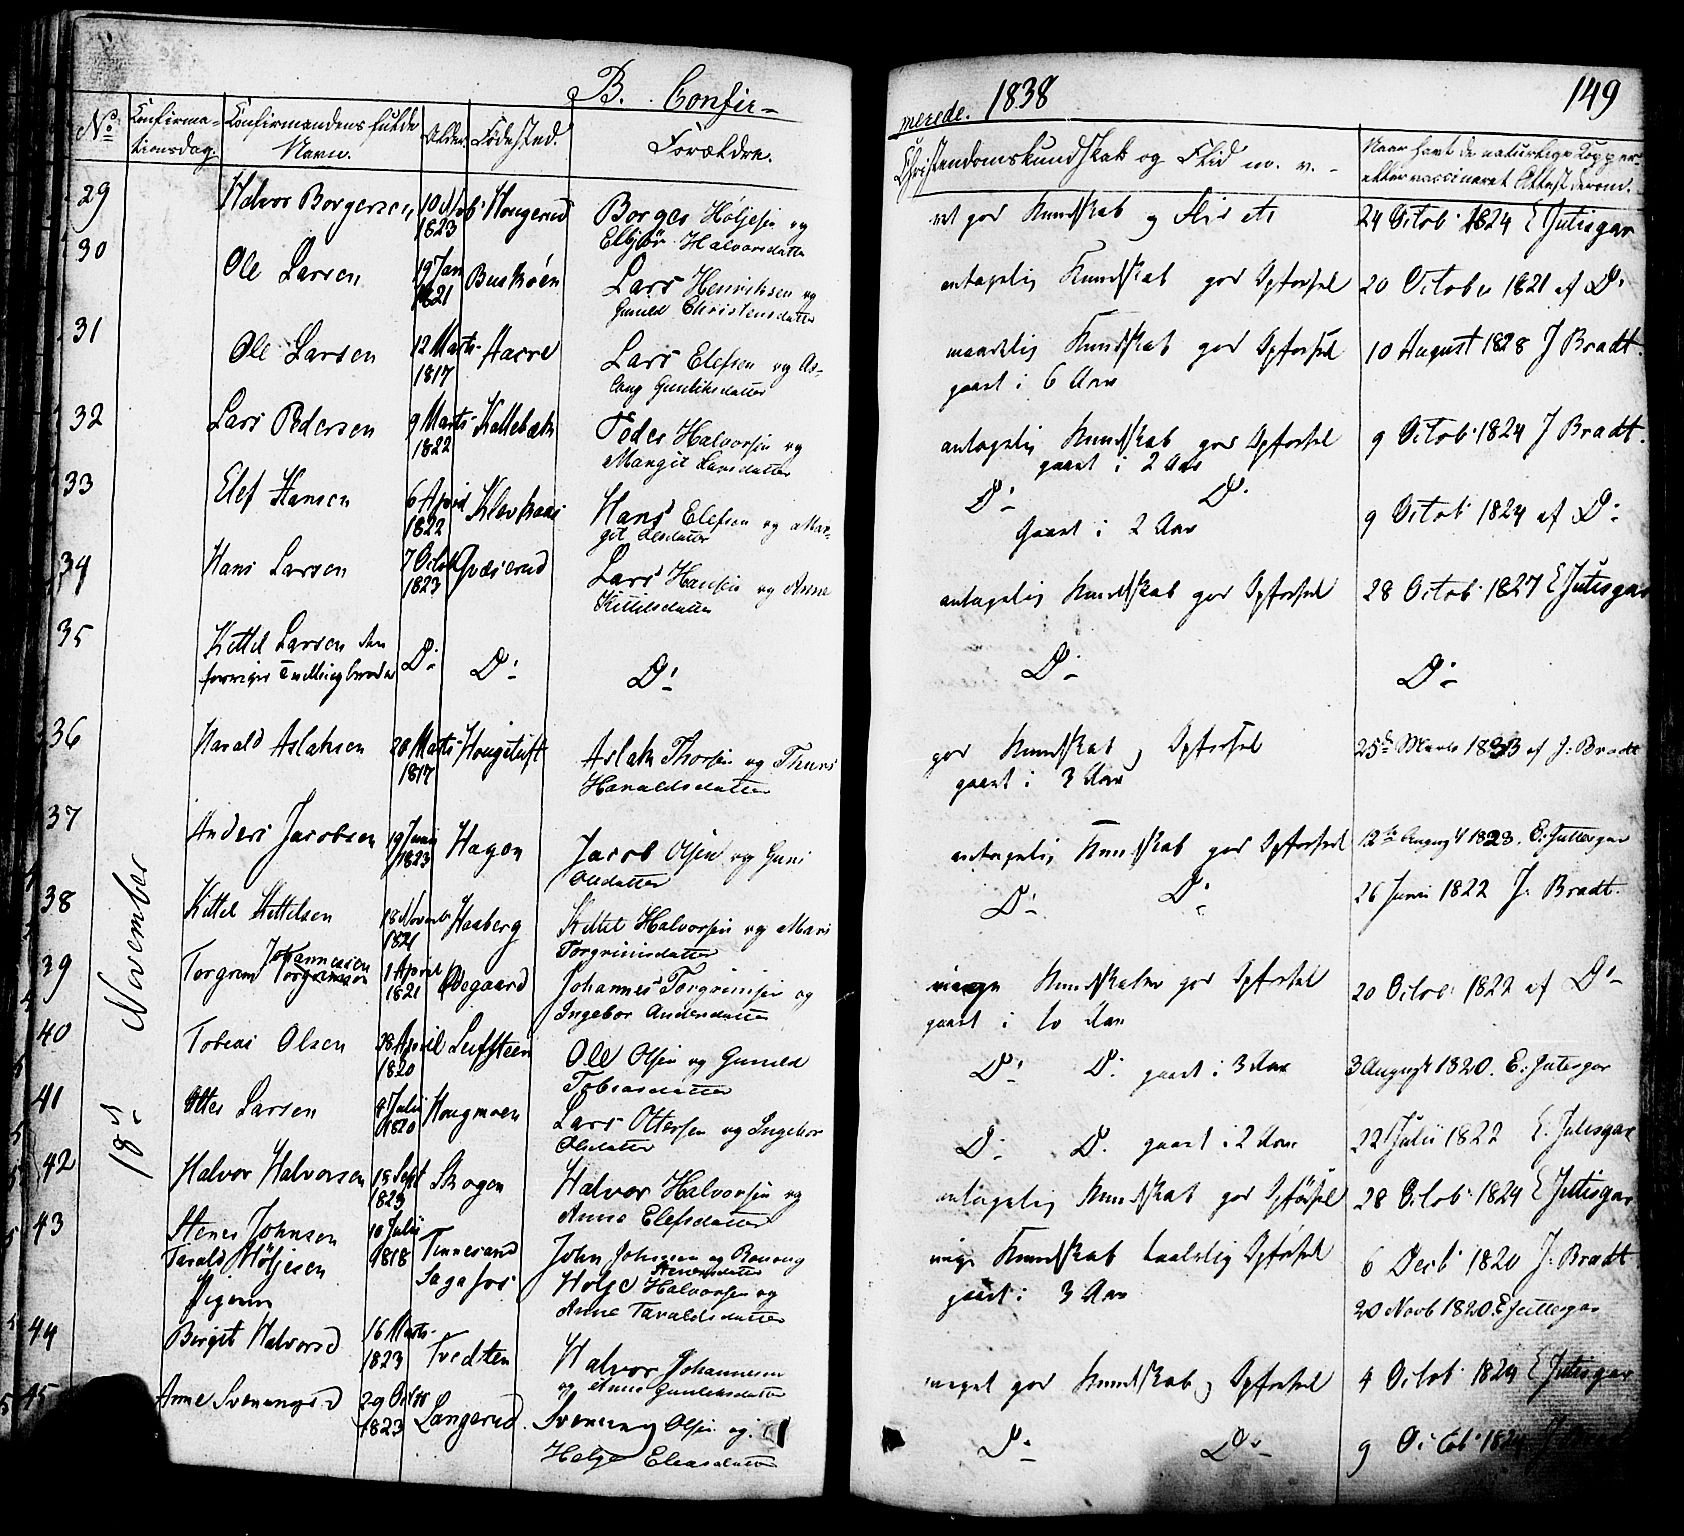 B. Confir-
merede. 1838
149
No
Confirma-
tionsdag.
Confirmandens fulde
Navn.
Alder.
Fødested.
Forældre.
Christendomskundskab og Flid m. v.
Naar havt de naturlige Kopper
eller vaccineret Attest derom.
18de November
29 Halvor Borgersen 10 Nob 1823 Hougerud
Borger Holjesen og
Halvorsdatter
24 Octob. 1824 E Jutisgar
30 Ole Larsen 19 Jan 1821 Buskøen
Lars Henriksen og
Gunild Christensdatter
antagelig Kundskab god Opførsel
20 October 1821 af Do
31 Ole Larsen 12 Marts 1817 Aarre
Lars Elefsen og As-
laug Gunliksdatter
maadelig Kundskab god Opførsel
gaaet i 6 Aar
10 August 1828 J Bradt.
32 Lars Pedersen 9 Marts 1822 Kettebæk
Peder Halvorsen og
Mangit Larsdatter
antagelig Kundskab god Opførsel
gaaet i 2 Aar
9 Octob. 1824 J Bradt.
33 Elef Hansen 6 April 1822 Klevkaas
Hans Elefsen og Mar-
git Olsdatter
Do Do
gaaet i 2 Aar
9 Octob. 1824 af Do
34 Hans Larsen 7 Octob 1823
Lars Hansen og Anne
Kittilsdatter
antagelig Kundskab god Opførsel
28 Octob. 1827 E Jutisgar
35 Kittel Larsen den
forriges Tvillingbroder Do Do
Do
Do
Do
36 Harald Aslaksen 20 Marts 1817 Hougstuft
Aslak Thorsen og Thuri
Haraldsdatter
god Kundskab og Opførsel
gaaet i 3 Aar
25de Marts 1833 af J. Bradt
37 Anders Jacobsen 19 Juni 1823 Hagen
Jacob Olsen og Guri
Olsdatter
antagelig Kundskab god Opførsel
12te August 1823. E. Juttesgar
38 Kittel Kittilsen 18 Novemb 1821 Haaberg
Kittil Halvorsen og Mari
Torgrimsdatter
Do Do
26 Juni 1822 J. Bradt.
39 Torgrim Johannesen 1 April 1821 Ødegaard
Johannes Torgrimsen og
Ingebor Andersdatter
Kundskaber god Opførsel
gaaet i 10 Aar
20 Octob. 1822 af Do
40 Tobias Olsen 28 April 1820 Luftsteen
Ole Olsen og Gunild
Tobiasdatter
Do Do gaaet i 3 Aar
3 August 1820. E. Jutesgar
41 Otter Larsen 8 Julii 1820 Hougmoen
Lars Ottersen og Ingebor
Olsdatter
Do Do gaaet i 2 Aar
22 Julii 1822 E. Jutesgar
42 Halvor Halvorsen 15 Sept 1823 Skogen
Halvor Halvorsen og
Anne Elefsdatter
antagelig Kundskab god Opførsel
28 Octob. 1824 E Jutisgar
43 Stener Johnsen 10 Julii 1818 Tinnesand
John Johnsen og Ronoug
Stenersdatter
ringe Kundskab taalelig Opførsel
gaaet i 3 Aar
6 Decb. 1820 J. Bradt
Tarald Høljesen Sagafos
Holje Halvorsen og
Anne Taraldsdatter
20 Novb 1820 E Juttesgar
Pigerne
44 Birgit Halvorsd 16 Marts 1823 Tvedten
Halvor Johannesen
og Anne Gunliksdatter
meget god Kundskab og Opførsel
4 Octob. 1824 E Jutisgar
45 Anne Sveningsd 29 Octob 1823 Langerud
Svening Olsen og
Helge Eleasdatter
Do Do
9 Octob. 1824